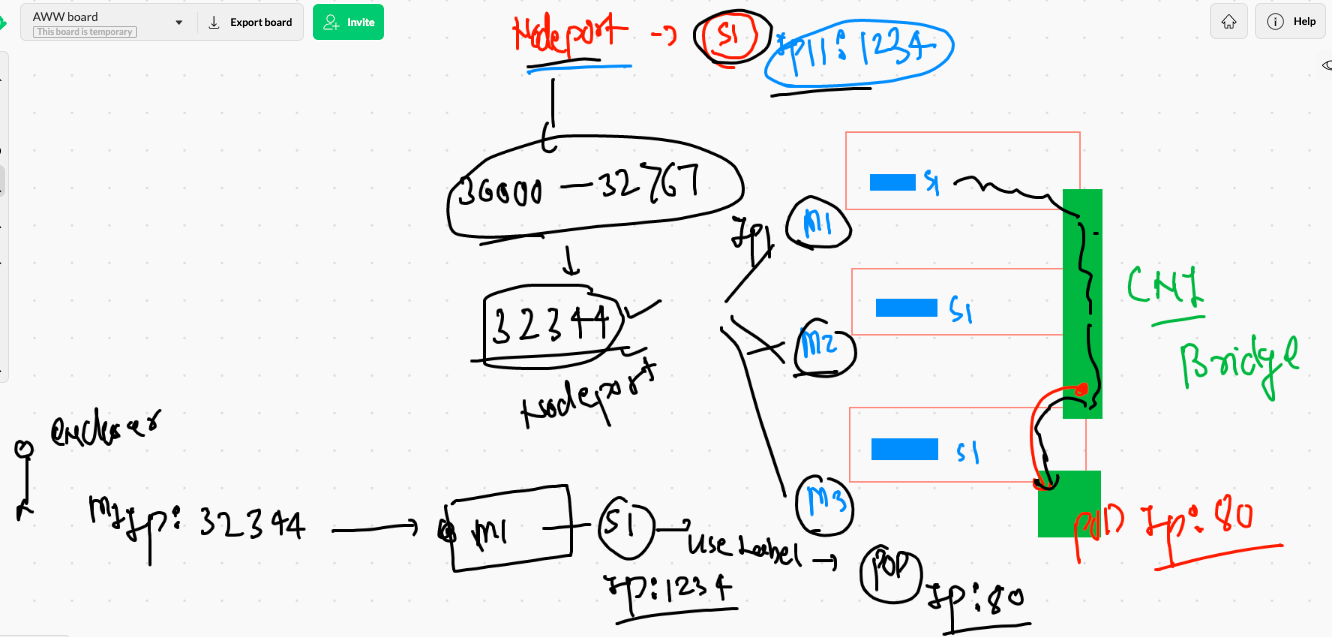 AWW board
This board is temporary
Export board
Invite
Help
Nodeport -> S1 IP11:1234
30000 - 32767
32344
Nodeport
IP1
M1
S1
M2
S1
M3
S1
CNI
Bridge
POD IP:80
enduser
M1 IP: 32344
M1
S1
IP:1234
Use Label ->
POD
IP:80